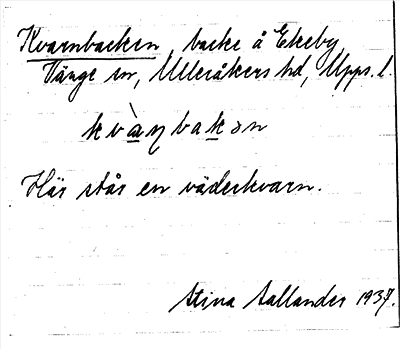 Kvarnbacken, backe å Ekeby,
Vänge sn, Ulleråkers hd, Upps. l.
kvànbakən
Här står en väderkvarn.
Stina Sallander 1937.